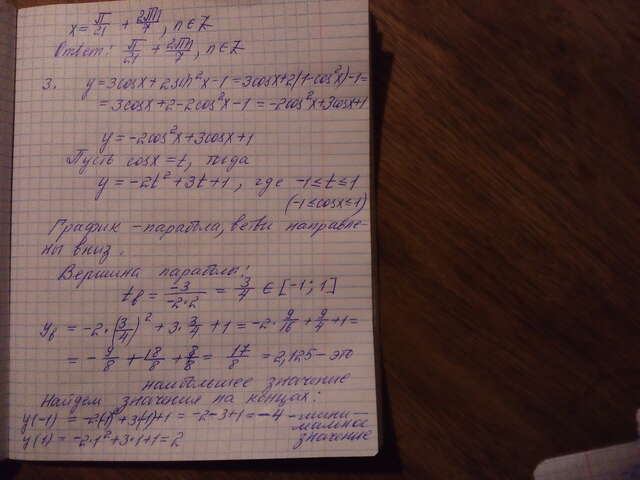 x = π/21 + 2πn/7, n ∈ Z
Ответ: π/21 + 2πn/7, n ∈ Z
3. y = 3cosx + 2sin²x - 1 = 3cosx + 2(1-cos²x) - 1 =
= 3cosx + 2 - 2cos²x - 1 = -2cos²x + 3cosx + 1
y = -2cos²x + 3cosx + 1
Пусть cosx = t, тогда
y = -2t² + 3t + 1, где -1 ≤ t ≤ 1
(-1 ≤ cosx ≤ 1)
График - парабола, ветви направле-
ны вниз.
Вершина параболы:
tв = -3/(-2·2) = 3/4 ∈ [-1; 1]
yв = -2·(3/4)² + 3·3/4 + 1 = -2·9/16 + 9/4 + 1 =
= -9/8 + 18/8 + 8/8 = 17/8 = 2,125 - это
наибольшее значение
Найдем значения на концах:
y(-1) = -2(-1)² + 3(-1) + 1 = -2 - 3 + 1 = -4 - мини-
мальное
y(1) = -2·1² + 3·1 + 1 = 2 значение